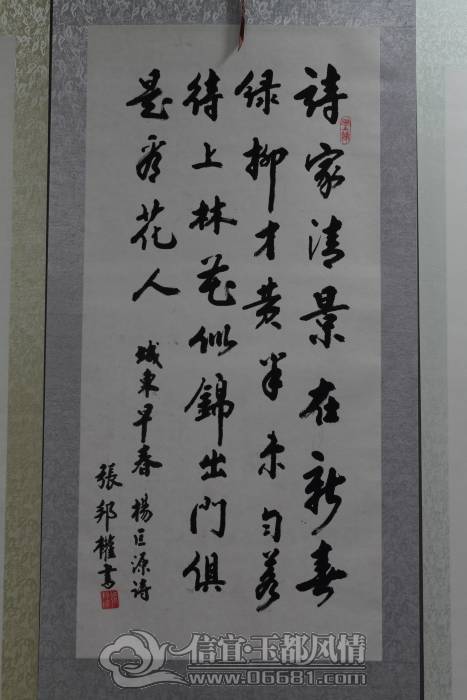 詩家清景在新春
緑柳才黄半未匀若
待上林花似錦出門俱
是看花人
城東早春 楊巨源诗
張邦權書
信宜·玉都风情
www.06681.com